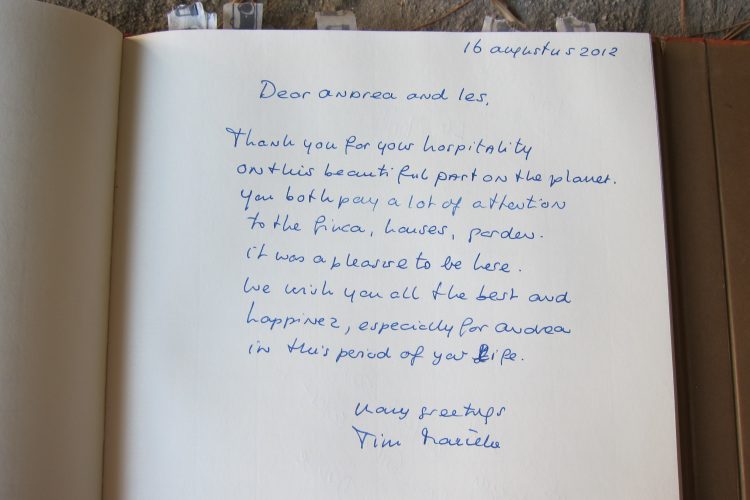 16 augustus 2012
Dear Andrea and Les,
Thank you for your hospitality
on this beautiful part on the planet.
you both pay a lot of attention
to the finca, houses, garden.
it was a pleasure to be here.
We wish you all the best and
happines, especially for andrea
in this period of your life.
Many greetings
Tim